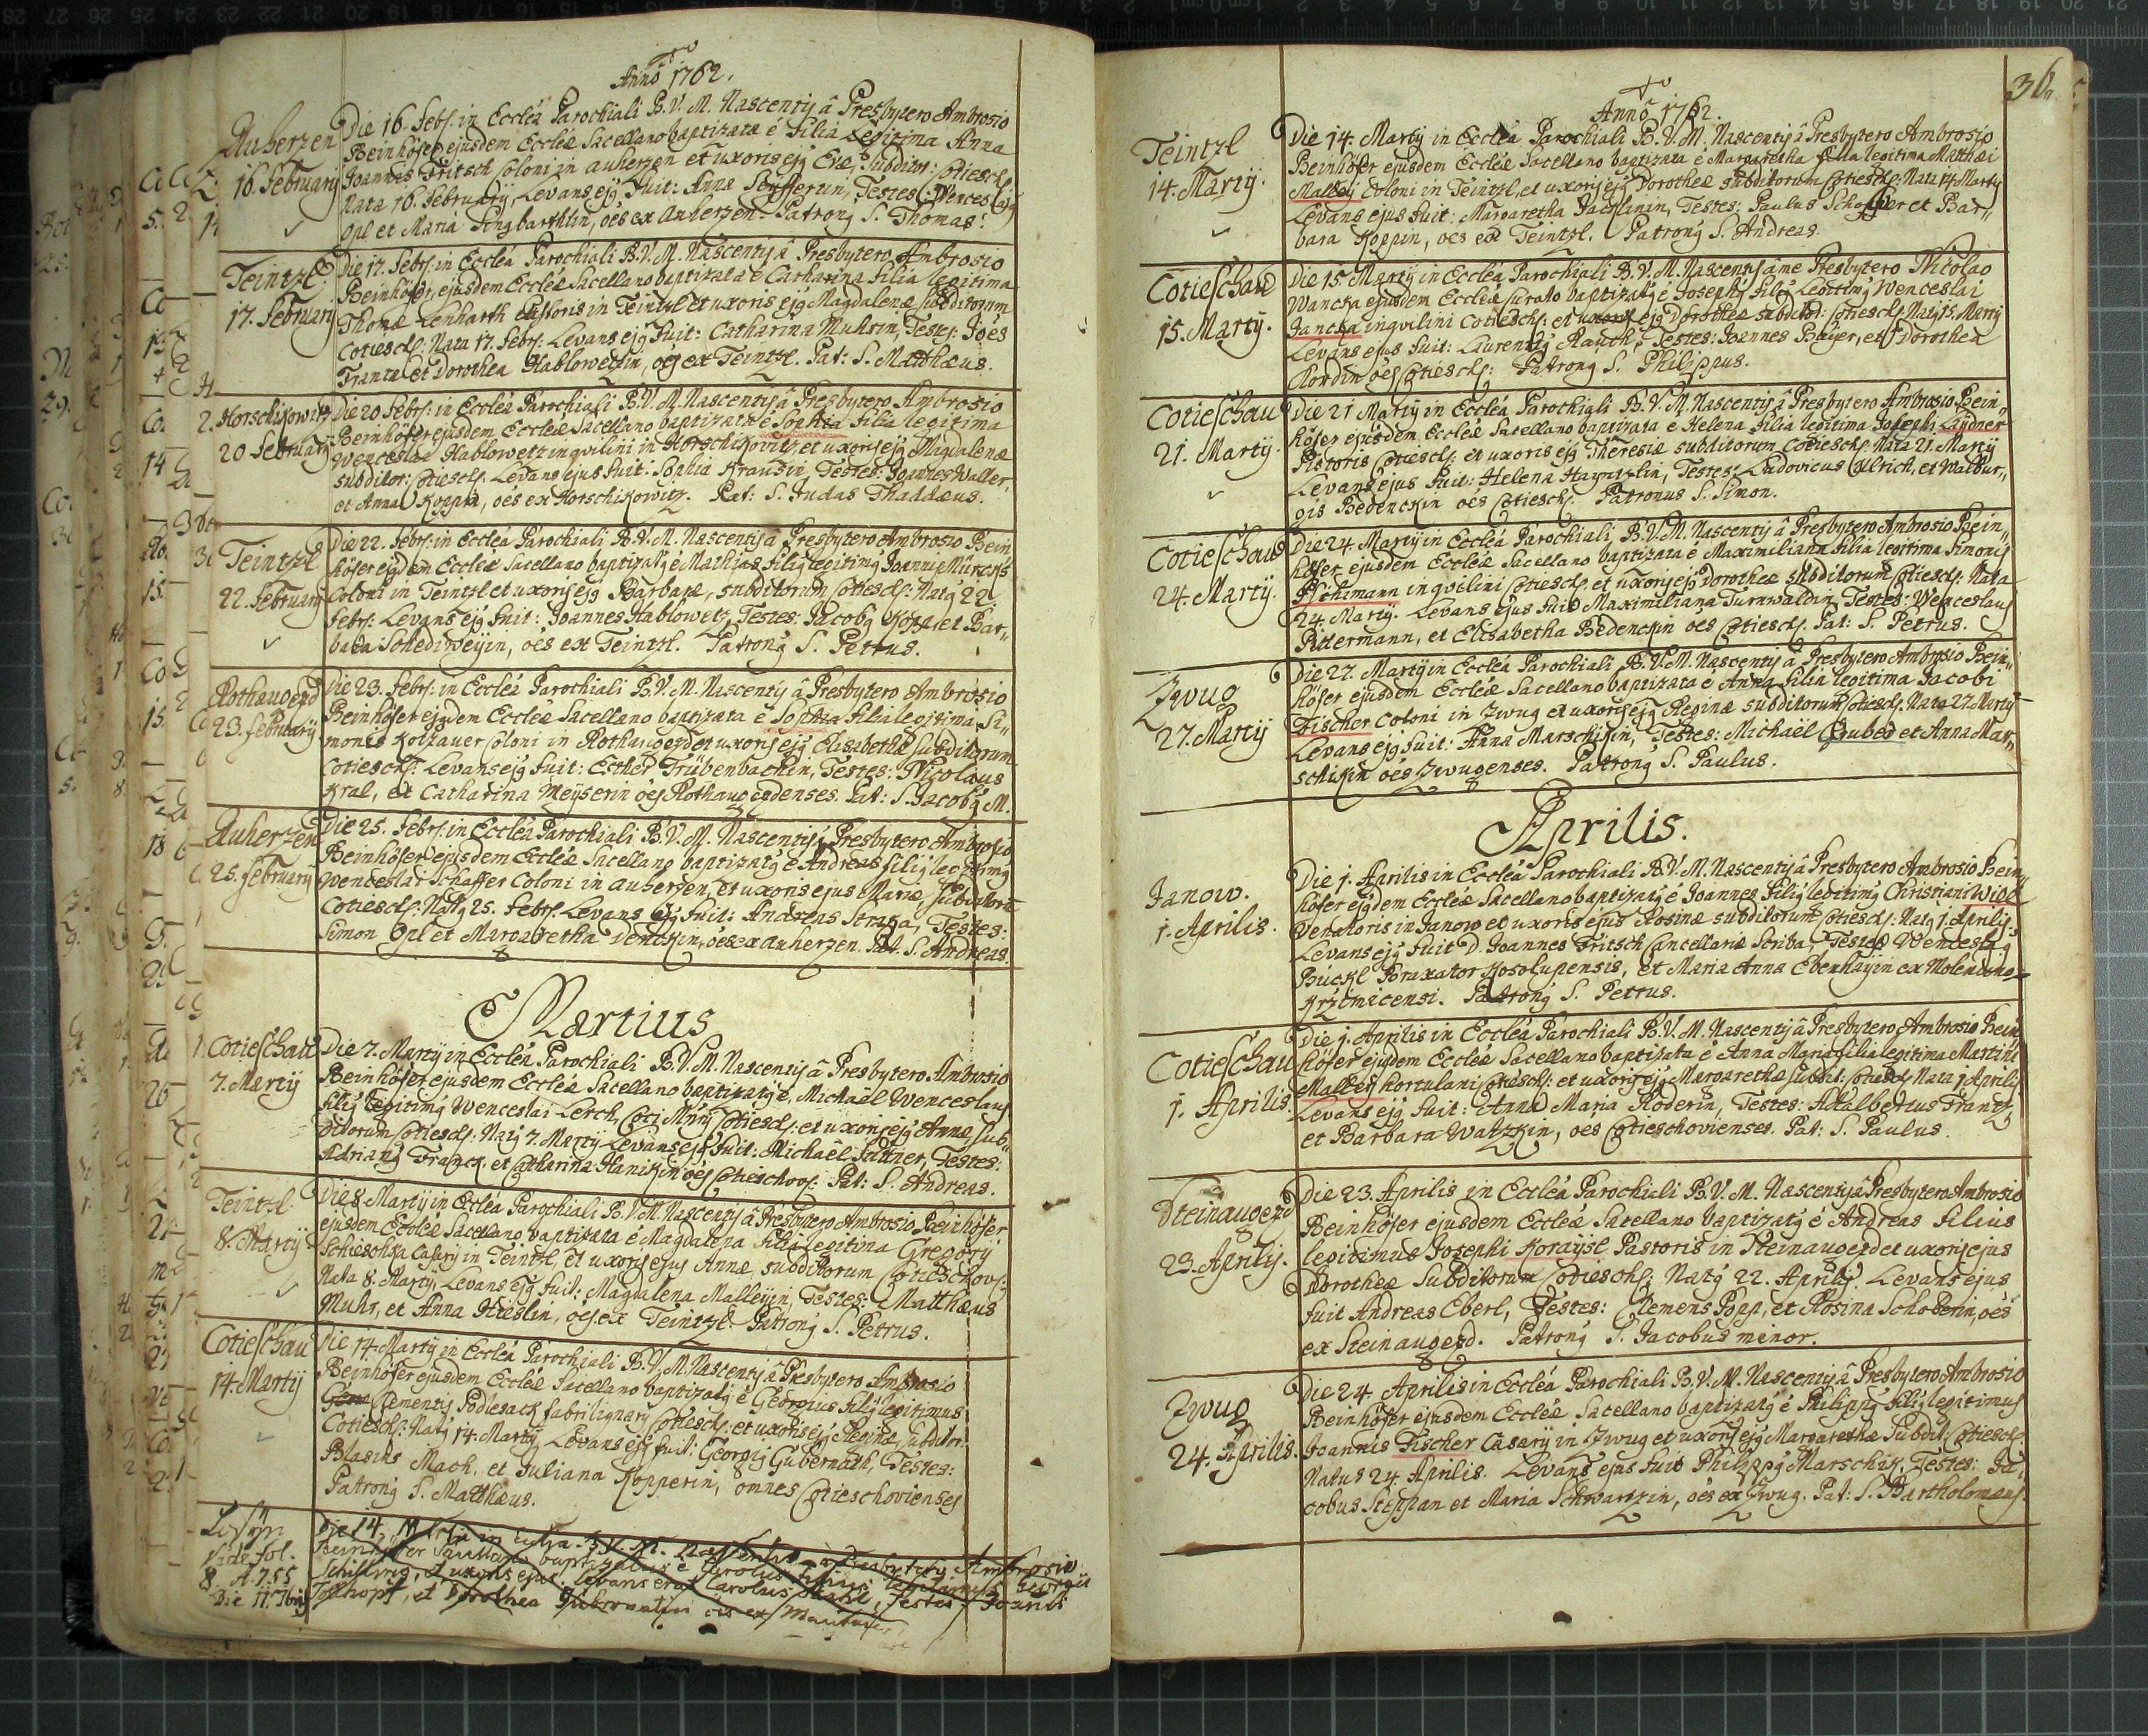 Anno 1762.
Auherzen
16. February
Die 16. Febr: in Eccleâ Parochiali B. V. M. Nascentis â Presbytero Ambrosio
Beinhöfer ejusdem Eccleæ Sacellano baptizata é Filia Legitima Anna
Joannis Fritsch Coloni in Auherzen et uxoris ejg Evæ, Subditor: Cotiesch:
Nata 16. February, Levans ejg Fuit: Anna Testes: Wenceslaus
Opl et Maria oés ex Auherzen. Patrong S. Thomas.
Teintzl
17. Februarij
Die 17. Febr: in Eccleâ Parochiali B. V. M. Nascentis â Presbytero Ambrosio
Beinhöfer, ejusdem Eccleæ Sacellano baptizata é Catharina Filia legitima
Thomæ Lenharth Pistoris in Teintzl et uxoris ejg Magdalenæ Subditorum
Cotiesch: Nata 17. Febr: Levans ejg Fuit: Catharina Muhrin, Testes: Joes
Frantz et Dorothea Hablowetzin, oés ex Teintzl. Pat: S. Matthæus.
Horschikowitz
20 February
Die 20 Febr: in Eccleâ Parochiali B. V. M. Nascentis â Presbytero Ambrosio
Beinhöfer ejusdem Eccleæ Sacellano baptizata é Sophia Filia legitima
Wenceslai Hablowetz inqvilini in Horschikowitz et uxoris ejg Magdalenæ
subditor: Cotiesch: Levans ejus Fuit: Sophia Krausin, Testes: Joannes Waller
et Anna Koppin, oés ex Horschikowitz. Pat: S. Judas Thaddæus.
Teintzl
22. February
Die 22. Febr: in Eccleâ Parochiali B. V. M. Nascentis â Presbytero Ambrosio Bein
höfer ejgdem Eccleæ Sacellano baptizatg é Mathias Filig legitimg Joannis
Coloni in Teintzl et uxoris ejg Barbaræ, subditorum Cotiesch: Natg 22.
Febr: Levans ejg Fuit: Joannes Hablowetz, Testes: Jacobg Kopp, et Bar„
bara Schediweyin, oés ex Teintzl. Patrong S. Petrus.
Rothaugezd
23. February
Die 23. Febr: in Eccleâ Parochiali B. V. M. Nascentis â Presbytero Ambrosio
Beinhöfer ejgdem Eccleæ Sacellano baptizata é Sophia Filia legitima Si„
monis Kotzauer Coloni in Rothaugezd et uxoris ejg Elisabethæ Subditorum
Cotiesch: Levans ejg Fuit: Esther Trübenbachin, Testes: Nicolaus
Kral, et Catharina Meyserin oés Rothaugezdenses. Pat: S. Jacobg M.
Auherzen
25. February
Die 25. Febr: in Eccleâ Parochiali B. V. M. Nascentis â Presbytero Ambrosio
Beinhöfer ejusdem Eccleæ Sacellano baptizatg é Andreas Filig legitimg
Wenceslai Schaffer Coloni in Auherzen, et uxoris ejus Mariæ, Subditoru
Cotiesch: Natg 25. Febr: Levans ejg Fuit: Andreas Straka, Testes:
Simon Opl et Margaretha Denckin, oés ex Auherzen. Pat: S. Andreas.
Martius
Cotieschau
7. Martij
Die 7. Martij in Eccleâ Parochiali B. V. M. Nascentis â Presbytero Ambrosio
Beinhöfer ejusdem Eccleæ Sacellano baptizatg é Michaël Wenceslaus
Filig legitimg Wenceslai Lerch, Cotiesch: et uxoris ejg Annæ Sub„
ditorum Cotiesch: Natg 7. Martij Levans ejg Fuit: Michaël Sattner, Testes:
Adriang Franck, et Catharina Hanikin oés Cotieschov: Pat: S. Andreas.
Teintzl
8. Martij
Die 8 Martij in Eccleâ Parochiali B. V. M. Nascentis â Presbytero Ambrosio Beinhöfer
ejusdem Eccleæ Sacellano baptizata é Magdalena Filia legitima Gregorij
Schieschka Casarij in Teintzl, et uxoris ejus Annæ subditorum Cotieschov:
Nata 8. Martij, Levans ejg Fuit: Magdalena Malleyin, Testes: Matthæus
Muhr, et Anna Hieslin, oés ex Teintzl. Patrong S. Petrus.
Cotieschau
14. Martij
Die 14. Martij in Eccleâ Parochiali B. V. M. Nascentis â Presbytero Ambrosio
Beinhöfer ejusdem Eccleæ Sacellano baptizatg é Georgius Filig legitimus
Clementis Podiesack fabri lignarij Cotiesch: et uxoris ejg Reginæ, Subditor:
Cotiesch: Natg 14. Martij, Levans ejg Fuit: Georgig Gubernath, Testes:
Blasius Mach, et Juliana Kopperin, omnes Cotieschovienses
Patrong S. Matthæus.
Losyn
Vide fol.
8 A. 755
Die 11. 7bris
Die 14. Ambrosio
Beinhöfer Sacellano baptizatus é Carolus Filius legitimus Georgii
et uxoris ejus Levans erat Carolus Testes Joannes
et Dorothea Gubernatin oés ex
36.
Anno 1762.
Teintzl
14. Martij.
Die 14. Martij in Eccleâ Parochiali B. V. M. Nascentis â Presbytero Ambrosio
Beinhöfer ejusdem Eccleæ Sacellano baptizata é Margaretha filia legitima Matthæi
Mallej Coloni in Teintzl, et uxoris ejg Dorotheæ subditorum Cotiesch: Nata 14 Martij
Levans ejus Fuit: Margaretha Jacslanin, Testes: Paulus Schaffer et Bar„
bara Koppin, oés ex Teintzl. Patrong S. Andreas.
Cotieschau
15. Martij.
Die 15. Martij in Eccleâ Parochiali B. V. M. Nascentis â me Presbytero Nicolao
Wancka ejusdem Eccleæ Curato baptizatg é Josephg Filig Legitimg Wenceslai
Jancka inqvilini Cotiesch: et uxoris ejg Dorotheæ subdit: Cotiesch: Natg 15. Martij
Levans ejus Fuit: Laurentig Rauch, Testes: Joannes Bayer, et Dorothea
Kordin oés Cotiesch: Patrong S. Philippus.
Cotieschau
21. Martij.
Die 21 Martij in Eccleâ Parochiali B. V. M. Nascentis â Presbytero Ambrosio Bein„
höfer ejusdem Eccleæ Sacellano baptizata é Helena Filia legitima Josephi Landner
Pistoris Cotiesch: et uxoris ejg Theresiæ subditorum Cotiesch: Nata 21. Martij
Levans ejus Fuit: Helena Hayntzlin, Testes: Ludovicus Ullrich, et Walbur„
gis Bedenckin oés Cotiesch: Patronus S. Simon.
Cotieschau
24. Martij.
Die 24. Martij in Eccleâ Parochiali, B. V. M. Nascentis â Presbytero Ambrosio Bein„
höfer ejusdem Eccleæ Sacellano baptizata é Maximiliana Filia legitima Simonis
Pschimann inqvilini Cotiesch: et uxoris ejg Dorotheæ Subditorum Cotiesch: Nata
24. Martij. Levans ejus Fuit Maximiliana Turnwaldin, Testes: Wenceslaus
Rittermann, et Elisabetha Bedenckin oés Cotiesch: Pat: S. Petrus.
Zwug
27. Martij
Die 27. Martij in Eccleâ Parochiali B. V. M. Nascentis â Presbytero Ambrosio Bein„
höfer ejusdem Eccleæ Sacellano baptizata é Anna Filia legitima Jacobi
Fischer Coloni in Zwug et uxoris ejg Reginæ subditorum Cotiesch: Nata 27. Martij
Levans ejg Fuit: Anna Marschikin, Testes: Michaël et Anna Mar„
schikin oés Zwugenses. Patrong S. Paulus.
Aprilis.
Janow.
1. Aprilis.
Die 1. Aprilis in Eccleâ Parochiali B. V. M. Nascentis â Presbytero Ambrosio Bein„
höfer ejgdem Eccleæ Sacellano baptizatg é Joannes Filig legitimg Christiani Widl
Venatoris in Janow et uxoris ejus Rosinæ subditorum Cotiesch: Natg 1. Aprilis.
Levans ejg Fuit D. Joannes Fritsch Cancellariæ Scriba, Testes Wenceslag
Bückl Braxator Kosolupensis, et Maria Anna Ebenhayin ex Molendino
Krzimicensi. Patrong S. Petrus.
Cotieschau
1. Aprilis.
Die 1. Aprilis in Eccleâ Parochiali B. V. M. Nascentis â Presbytero Ambrosio Bein„
höfer ejusdem Eccleæ Sacellano baptizata é Anna Maria filia legitima Martini
Malley hortulani Cotiesch: et uxoris ejg Margarethæ subdit: Cotiesch: Nata 1 Aprilis.
Levans ejg Fuit: Anna Maria Roderin, Testes: Adalbertus Frantz
et Barbara Watzkin, oés Cotieschovienses. Pat: S. Paulus.
Steinaugezd
23. Aprilis.
Die 23. Aprilis in Eccleâ Parochiali B. V. M. Nascentis â Presbytero Ambrosio
Beinhöfer ejusdem Eccleæ Sacellano baptizatg é Andreas Filius
legitimus Josephi Koraysl Pastoris in Steinaugezd et uxoris ejus
Dorotheæ Subditorum Cotiesch: Natg 22. Aprilis. Levans ejus
fuit Andreas Eberl, Testes: Clemens Popp, et Rosina Schoberin, oés
ex Steinaugezd. Patrong S. Jacobus minor.
Zwug
24. Aprilis.
Die 24. Aprilis in Eccleâ Parochiali B. V. M. Nascentis â Presbytero Ambrosio
Beinhöfer ejusdem Eccleæ Sacellano baptizatg é Philippg Filig legitimus
Joannis Fischer Casarij in Zwug et uxoris ejg Margarethæ Subdit: Cotiesch:
Natus 24. Aprilis. Levans ejus Fuit Philippg Marschik, Testes: Ja„
cobus Steppan et Maria Schwartzin, oés ex Zwug. Pat: S. Bartholomæus.